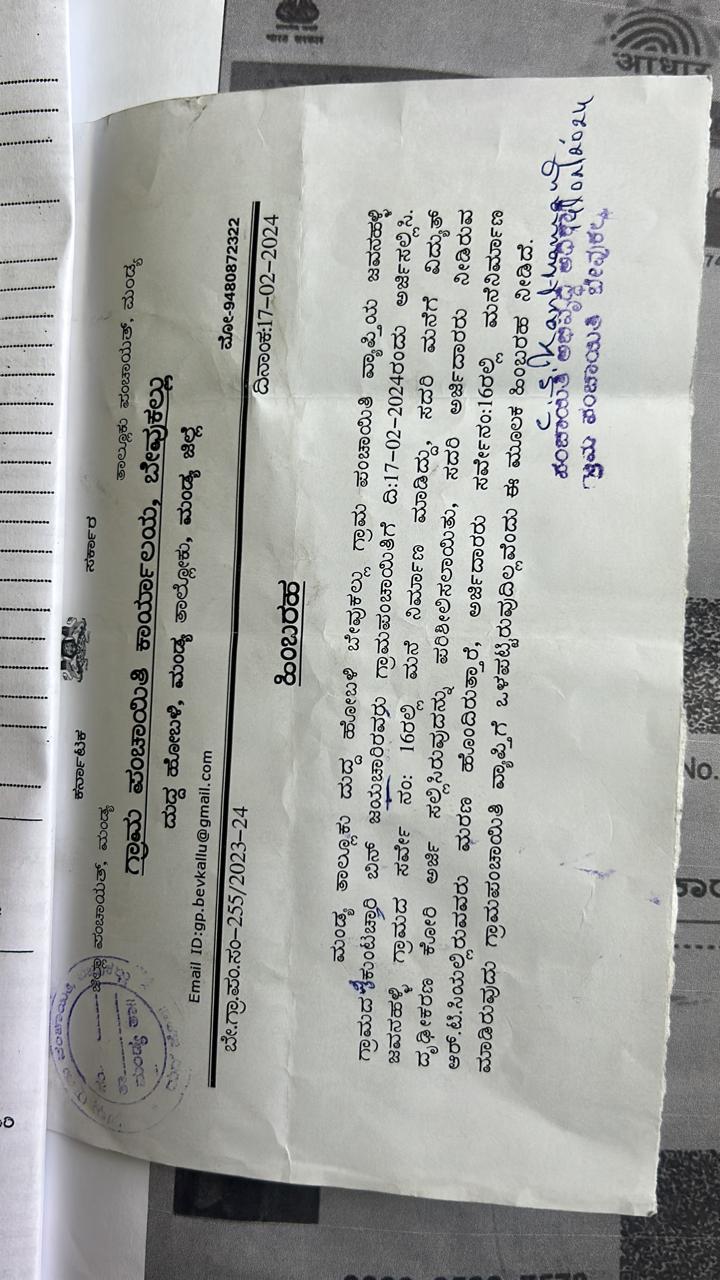 ಕರ್ನಾಟಕ ಸರ್ಕಾರ
ಜಿಲ್ಲಾ ಪಂಚಾಯತ್, ಮಂಡ್ಯ ತಾಲ್ಲೂಕು ಪಂಚಾಯತ್, ಮಂಡ್ಯ
ಗ್ರಾಮ ಪಂಚಾಯಿತಿ ಕಾರ್ಯಾಲಯ, ಬೇವುಕಲ್ಲು
ದುದ್ದ ಹೋಬಳಿ, ಮಂಡ್ಯ ತಾಲ್ಲೋಕು, ಮಂಡ್ಯ ಜಿಲ್ಲೆ
Email ID:gp.bevkallu@gmail.com ಮೋ-9480872322
ಬೇ.ಗ್ರಾ.ಪಂ.ಸಂ-255/2023-24 ದಿನಾಂಕ:17-02-2024
ಹಿಂಬರಹ
ಮಂಡ್ಯ ತಾಲ್ಲೂಕು ದುದ್ದ ಹೋಬಳಿ ಬೇವುಕಲ್ಲು ಗ್ರಾಮ ಪಂಚಾಯಿತಿ ವ್ಯಾಪ್ತಿಯ ಜವನಹಳ್ಳಿ
ಗ್ರಾಮದ ಶ್ರೀಕಂಟಚ್ಚಾರಿ ಬಿನ್ ಜಯಚಾರಿರವರು ಗ್ರಾಮಪಂಚಾಯಿತಿಗೆ ದಿ:17-02-2024ರಂದು ಅರ್ಜಿಸಲ್ಲಿಸಿ.
ಜವನಹಳ್ಳಿ ಗ್ರಾಮದ ಸರ್ವೇ ನಂ: 16ರಲ್ಲಿ ಮನೆ ನಿರ್ಮಾಣ ಮಾಡಿದ್ದು, ಸದರಿ ಮನೆಗೆ ವಿದ್ಯುತ್
ದೃಢೀಕರಣ ಕೋರಿ ಅರ್ಜಿ ಸಲ್ಲಿಸಿರುವುದನ್ನು ಪರಿಶೀಲಿಸಲಾಯಿತು, ಸದರಿ ಅರ್ಜಿದಾರರು ನೀಡಿರುವ
ಆರ್.ಟಿ.ಸಿಯಲ್ಲಿರುವವರು ಮರಣ ಹೊಂದಿರುತ್ತಾರೆ, ಅರ್ಜಿದಾರರು ಸರ್ವೇನಂ:16ರಲ್ಲಿ ಮನೆನಿರ್ಮಾಣ
ಮಾಡಿರುವುದು ಗ್ರಾಮಪಂಚಾಯಿತಿ ವ್ಯಾಪ್ತಿಗೆ ಒಳಪಟ್ಟಿರುವುದಿಲ್ಲವೆಂದು ಈ ಮೂಲಕ ಹಿಂಬರಹ ನೀಡಿದೆ.
ಪಂಚಾಯಿತಿ ಅಭಿವೃದ್ಧಿ ಅಧಿಕಾರಿ
ಗ್ರಾಮ ಪಂಚಾಯಿತಿ ಬೇವುಕಲ್ಲು
ಮಂಡ್ಯ ತಾ||
भारत सरकार
आधार
No.